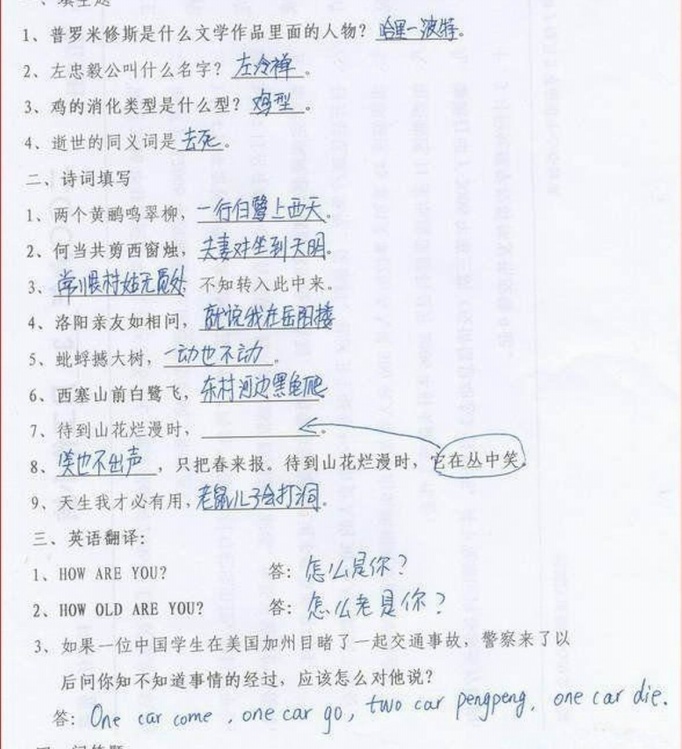 一、填空题
1、普罗米修斯是什么文学作品里面的人物？哈里一波特。
2、左忠毅公叫什么名字？左冷禅。
3、鸡的消化类型是什么型？鸡型。
4、逝世的同义词是去死。
二、诗词填写
1、两个黄鹂鸣翠柳，一行白鹭上西天。
2、何当共剪西窗烛，夫妻对坐到天明。
3、常恨村姑无觅处 不知转入此中来。
4、洛阳亲友如相问，就说我在岳阳楼
5、蚍蜉撼大树，一动也不动。
6、西塞山前白鹭飞，东村河边黑龟爬
7、待到山花烂漫时，＿＿＿＿＿。
8、俏也不出声，只把春来报。待到山花烂漫时，它在丛中笑。
9、天生我才必有用，老鼠儿子会打洞。
三、英语翻译：
1、HOW ARE YOU? 答：怎么是你？
2、HOW OLD ARE YOU? 答：怎么老是你？
3、如果一位中国学生在美国加州目睹了一起交通事故，警察来了以
后问你知不知道事情的经过，应该怎么对他说？
答：One car come , one car go, two car pengpeng, one car die.